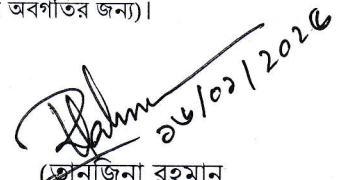 অবগতির জন্য)।
১৬/০১/২০২৫
(তানজিনা রহমান